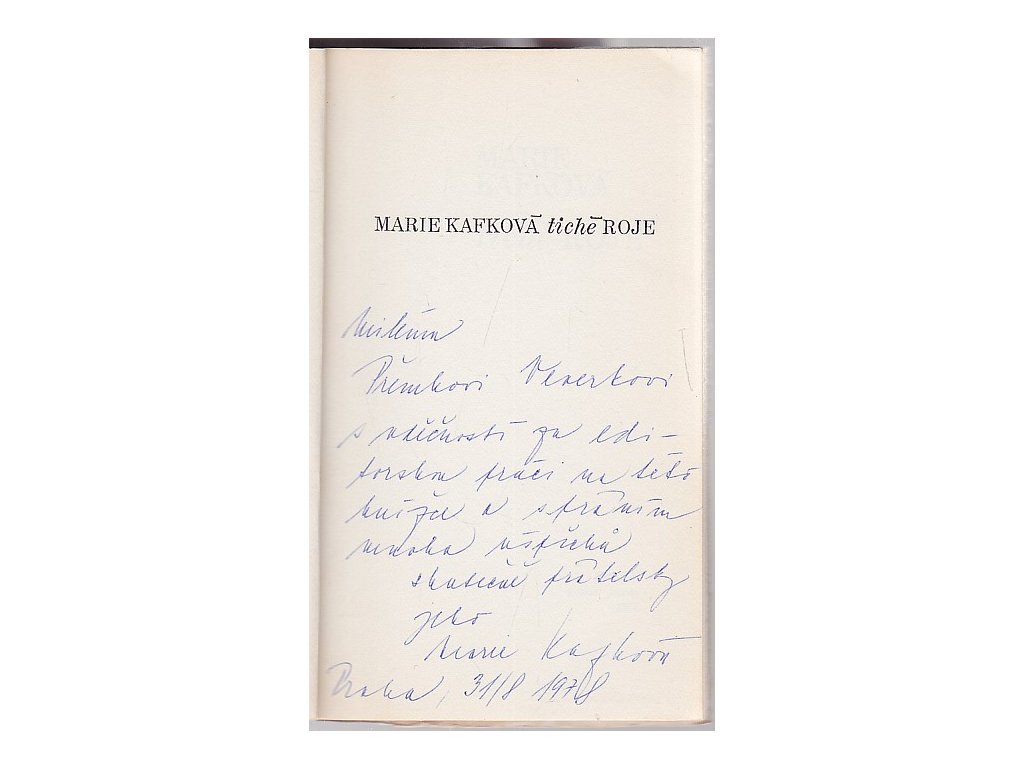 MARIE KAFKOVÁ tiché ROJE
Milému
Přemkovi Veverkovi
s vděčností za edi-
torskou práci na této
knížce a s přáním
mnoha úspěchů
skutečně přátelsky
jeho
Marie Kafková
Praha, 31/8 1978